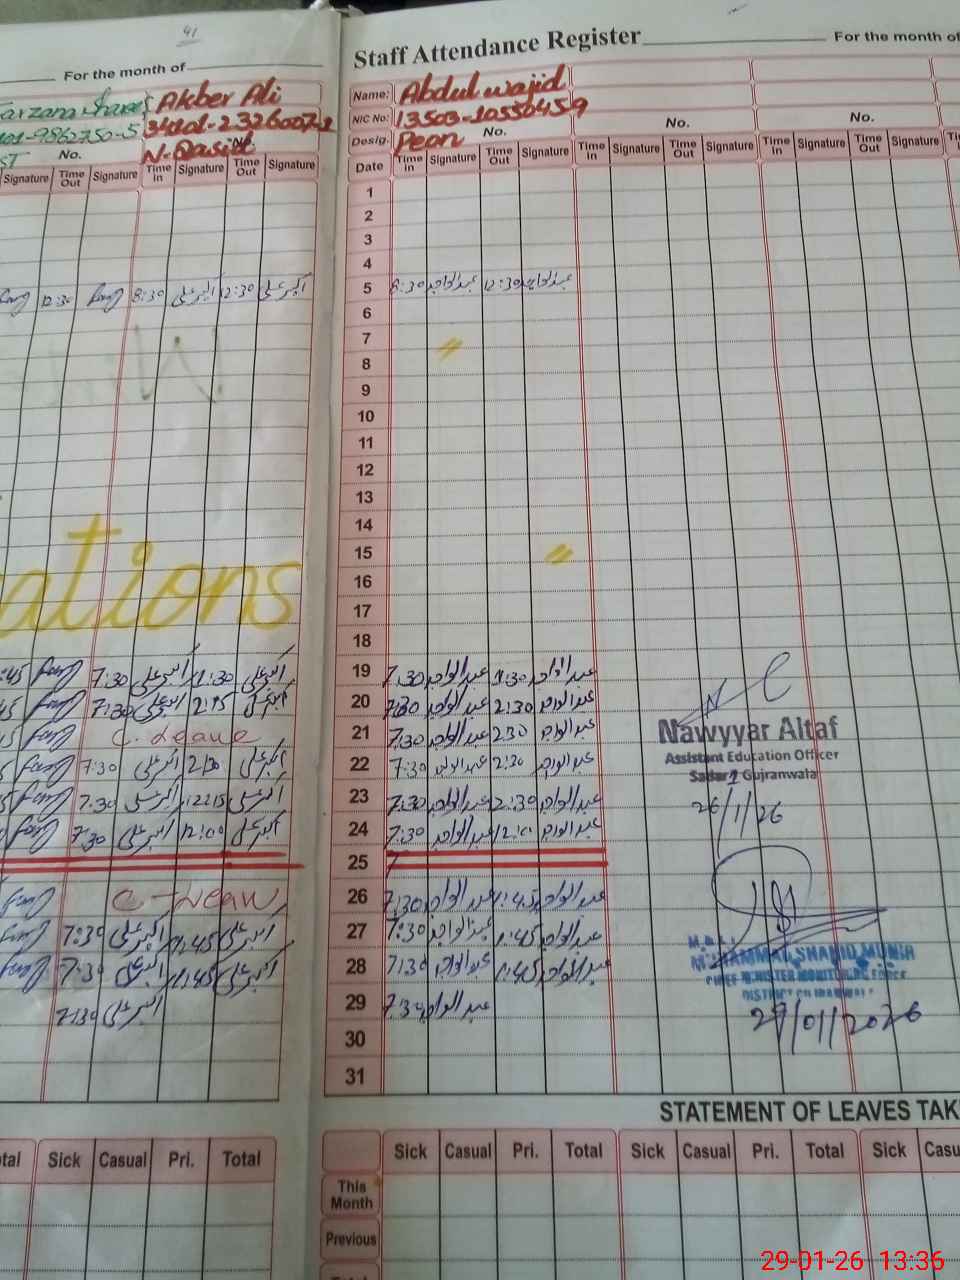 41
For the month of
Akber Ali
34101-2326007-1
N-Qasid
No.
Signature Time Out Signature Time In Signature Time Out Signature
12:30 8:30 اکبر علی 12:30 اکبر علی
ations
:45 7:30 اکبر علی 11:30 اکبر علی
45 7:30 اکبر علی 2:15 اکبر علی
15 C. Leave
7:30 اکبر علی اکبر علی
7:30 اکبر علی 12:15 اکبر علی
7:30 اکبر علی 12:00 اکبر علی
7:30 اکبر علی 1:45 اکبر علی
7:30 اکبر علی 1:45 اکبر علی
7:30 اکبر علی
Sick Casual Pri. Total
Staff Attendance Register For the month of
Name: Abdul wajid
NIC No: 13503-1055045-9 No. No.
Desig. Peon No.
Date Time In Signature Time Out Signature Time In Signature Time Out Signature Time In Signature Time Out Signature
1
2
3
4
5 8:30 عبدالواجد 12:30 عبدالواجد
6
7 "
8
9
10
11
12
13
14
15 "
16
17
18
19 7:30 عبدالواجد 11:30 عبدالواجد
20 7:30 عبدالواجد 2:30 عبدالواجد
21 7:30 عبدالواجد 2:30 عبدالواجد
22 7:30 عبدالواجد 2:30 عبدالواجد
23 7:30 عبدالواجد 2:30 عبدالواجد
24 7:30 عبدالواجد 12:00 عبدالواجد
25
26 7:30 عبدالواجد 1:45 عبدالواجد
27 7:30 عبدالواجد 1:45 عبدالواجد
28 7:30 عبدالواجد 1:45 عبدالواجد
29 7:30 عبدالواجد
30
31
Nawyyar Altaf
Assistant Education Officer
Sadar 1 Gujranwala
26/1/26
MUHAMMAD SHAHID MUNIR
CHIEF MINISTER MONITORING FORCE
DISTRICT GUJRANWALA
29/01/2026
STATEMENT OF LEAVES TAK
Sick Casual Pri. Total Sick Casual Pri. Total Sick Casu
This Month
Previous
29-01-26 13:36